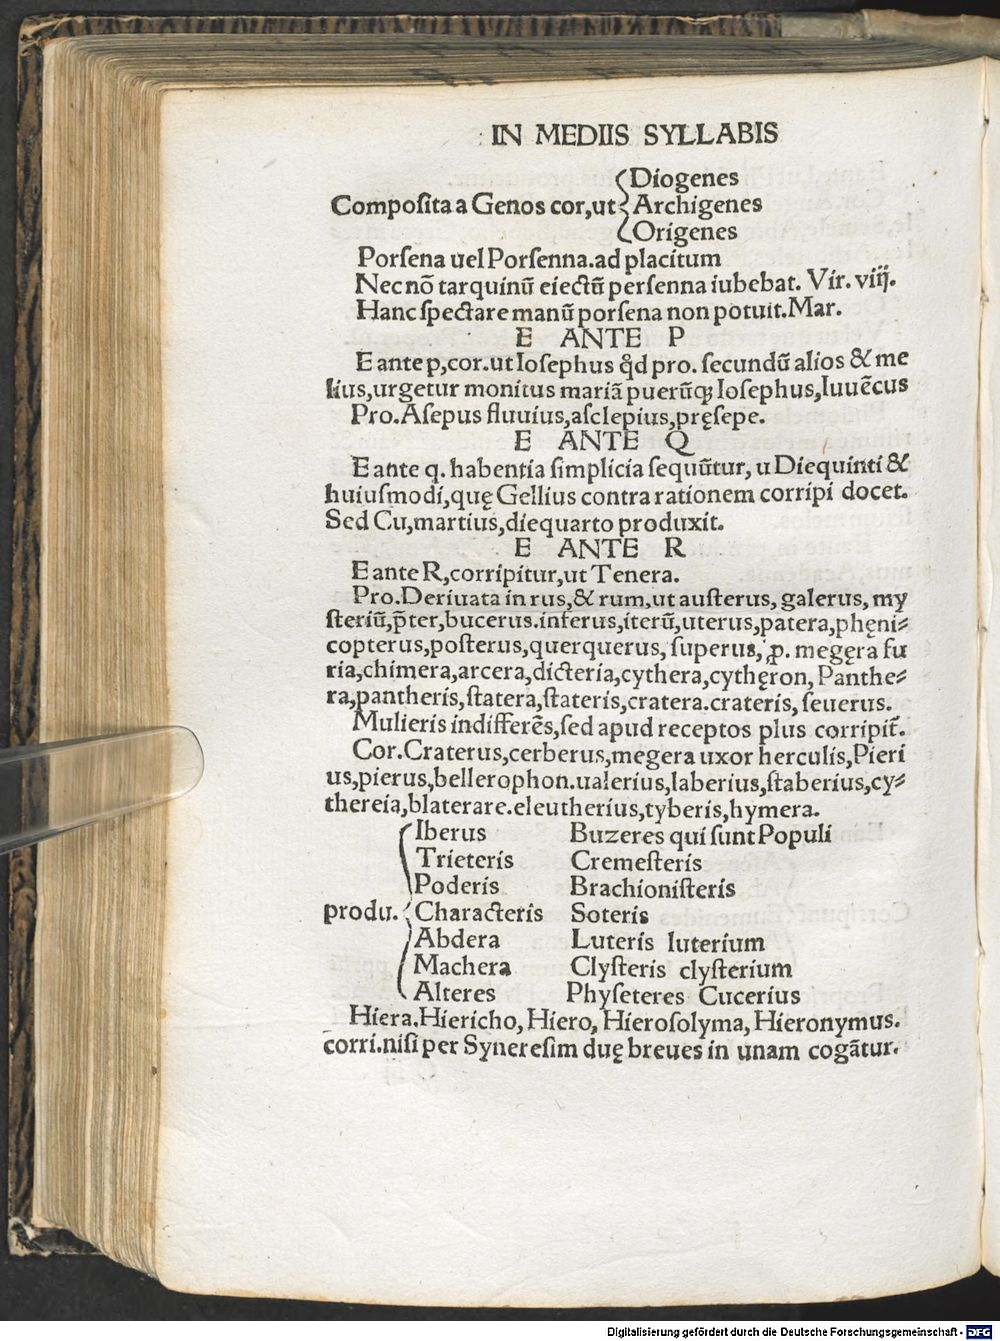 IN MEDIIS SYLLABIS
Diogenes
Compoſita a Genos cor,ut Archigenes
Origenes
Porſena uel Porſenna.ad placitum
Nec nō tarquinū eiectū perſenna iubebat. Vir. viij.
Hanc ſpectare manū porſena non potuit.Mar.
E ANTE P
E ante p,cor.ut Ioſephus ꝙd pro. ſecundū alios & me
lius,urgetur monitus mariā puerūqꝫ Ioſephus,Iuuēcus
Pro.Aſepus fluuius,aſclepius,pręſepe.
E ANTE Q
E ante q. habentia ſimplicia ſequūtur, u Diequinti &
huiuſmodi,quę Gellius contra rationem corripi docet.
Sed Cu,martius,diequarto produxit.
E ANTE R
E ante R,corripitur,ut Tenera.
Pro.Deriuata in rus,& rum,ut auſterus, galerus, my
ſteriū,p̄ter,bucerus.inferus,iterū,uterus,patera,phęni⸗
copterus,poſterus,querquerus, ſuperus, ꝓ. megęra fu
ria,chimera,arcera,dicteria,cythera,cythęron, Panthe⸗
ra,pantheris,ſtatera,ſtateris,cratera.crateris, ſeuerus.
Mulieris indifferēs,ſed apud receptos plus corripit̄.
Cor.Craterus,cerberus,megera uxor herculis,Pieri
us,pierus,bellerophon.ualerius,laberius,ſtaberius,cy⸗
thereia,blaterare.eleutherius,tyberis,hymera.
Iberus Buzeres qui ſunt Populi
Trieteris Cremeſteris
Poderis Brachioniſteris
produ. Characteris Soteris
Abdera Luteris luterium
Machera Clyſteris clyſterium
Alteres Phyſeteres Cucerius
Hiera.Hiericho, Hiero, Hieroſolyma, Hieronymus.
corri.niſi per Syneresim duę breues in unam cogātur.
Digitalisierung gefördert durch die Deutsche Forschungsgemeinschaft - DFG